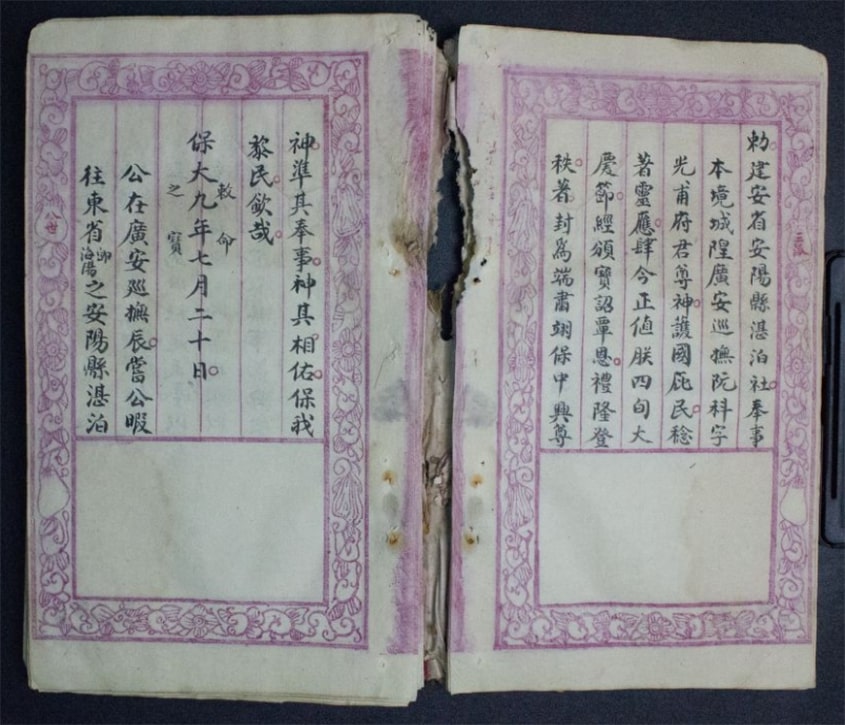 勅建安省安陽縣湛泊社奉事
本境城隍廣安巡撫阮科字
光甫府君尊神護國庇民稔
著靈應肆今正値朕四旬大
慶節經頒寶詔覃恩禮隆登
秩著封爲端肅翊保中興尊
神準其奉事神其相佑保我
黎民欽哉
保大九年七月二十日
敕命
之寶
公在廣安巡撫辰嘗公暇
往東省即海陽之安陽縣湛泊